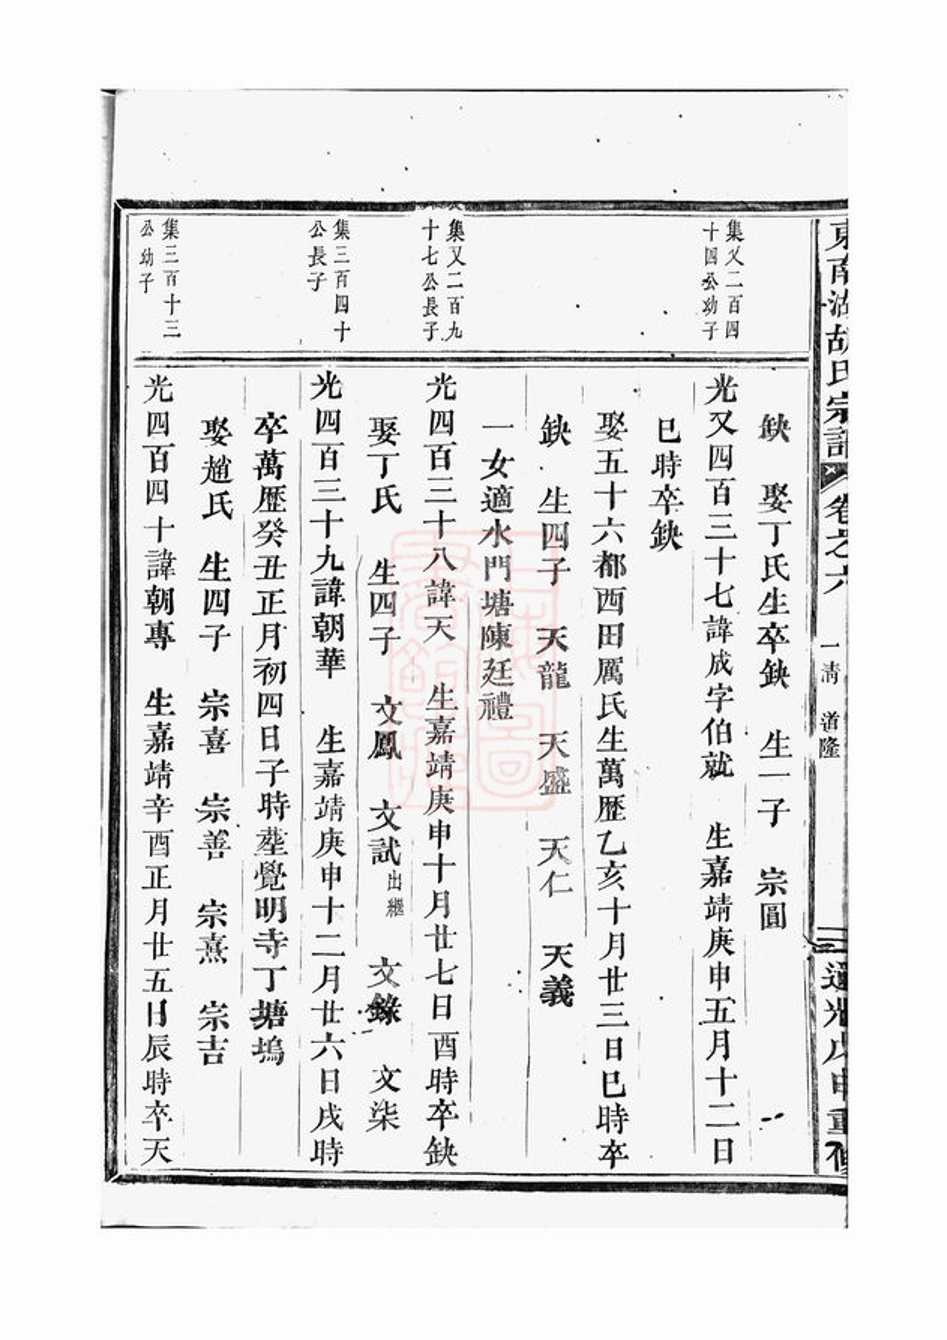 東南湖胡氏宗譜 卷之六 一清 道隆 道光戊申重修
缺 娶丁氏生卒缺 生一子 宗圓
集又二百四
十四公幼子
光又四百三十七諱成字伯就 生嘉靖庚申五月十二日
巳時卒缺
娶五十六都西田厲氏生萬歷乙亥十月廿三日巳時卒
缺 生四子 天龍 天盛 天仁 天義
一女適水門塘陳廷禮
集又二百九
十七公長子
光四百三十八諱天 生嘉靖庚申十月廿七日酉時卒缺
娶丁氏 生四子 文鳳 文試出繼 文錄 文柒
集三百四十
公長子
光四百三十九諱朝華 生嘉靖庚申十二月廿六日戌時
卒萬歷癸丑正月初四日子時塟覺明寺丁塘塢
娶趙氏 生四子 宗喜 宗善 宗熹 宗吉
集三百十三
公幼子
光四百四十諱朝專 生嘉靖辛酉正月廿五日辰時卒天